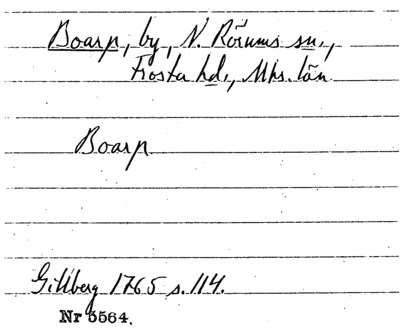 Boarp, by, N. Rörums sn.,
Frosta hd., Mhs. län
Boarp
Gillberg 1765 s. 114.
Nr 5564.